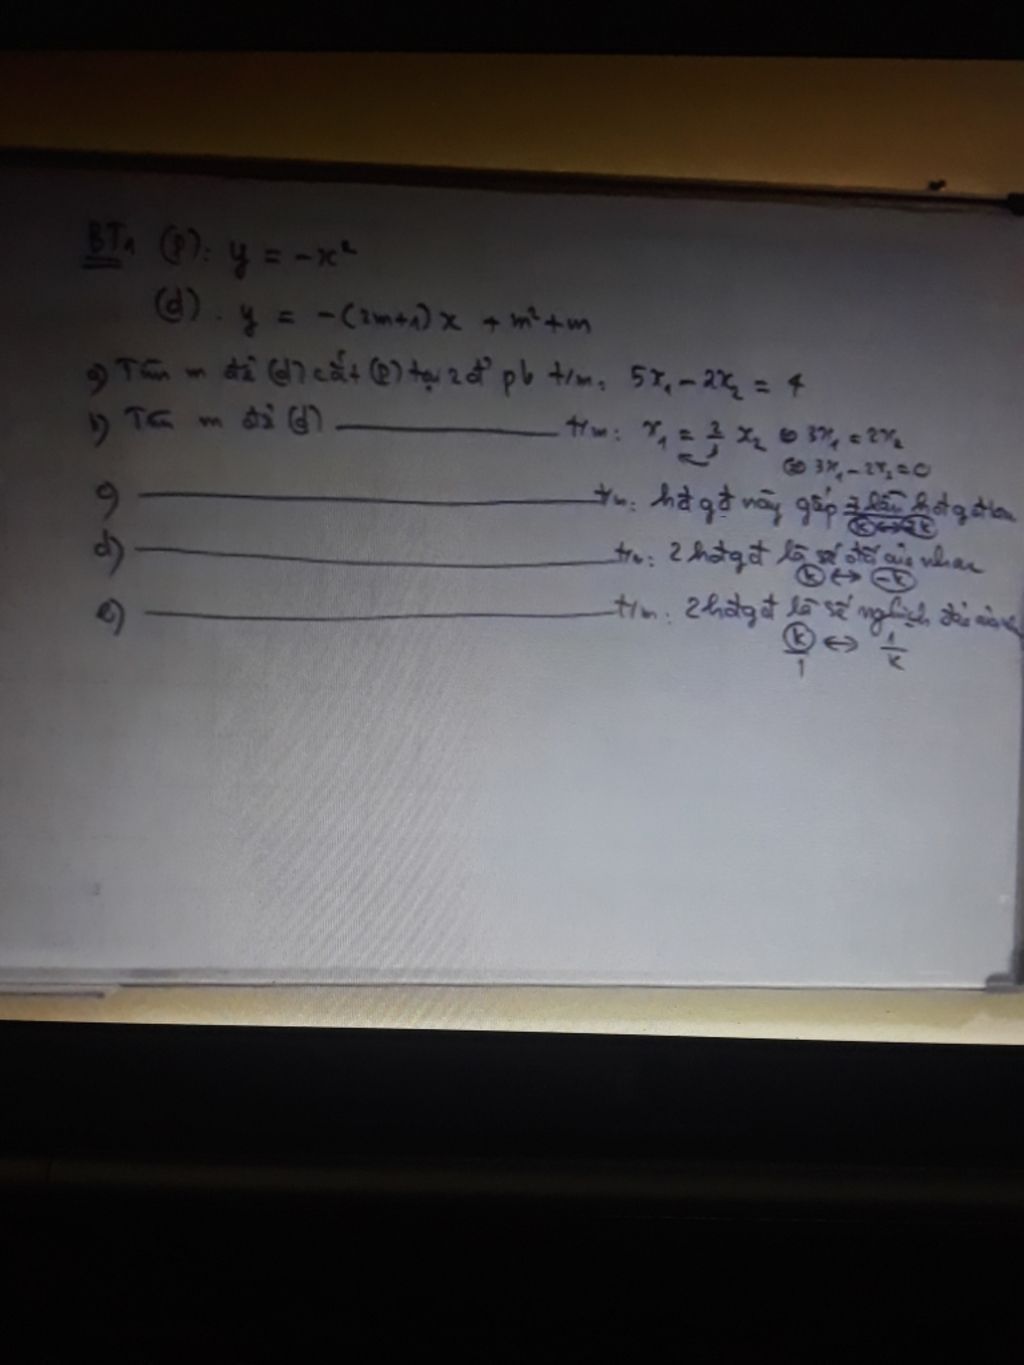 BT1 (P): y = -x²
(d). y = -(2m+1)x + m² + m
a) Tìm m để (d) cắt (P) tại 2 đ' pb t/m: 5x₁ - 2x₂ = 4
b) Tìm m để (d) ———— t/m: x₁ = 2/3 x₂ ⇔ 3x₁ = 2x₂
⇔ 3x₁ - 2x₂ = 0
c) ———— t/m: hđgđ này gấp lần hđgđ kia
d) ———— t/m: 2 hđgđ là số đối của nhau
k ↔ -k
e) ———— t/m: 2 hđgđ là số nghịch đảo của
k/1 ↔ 1/k